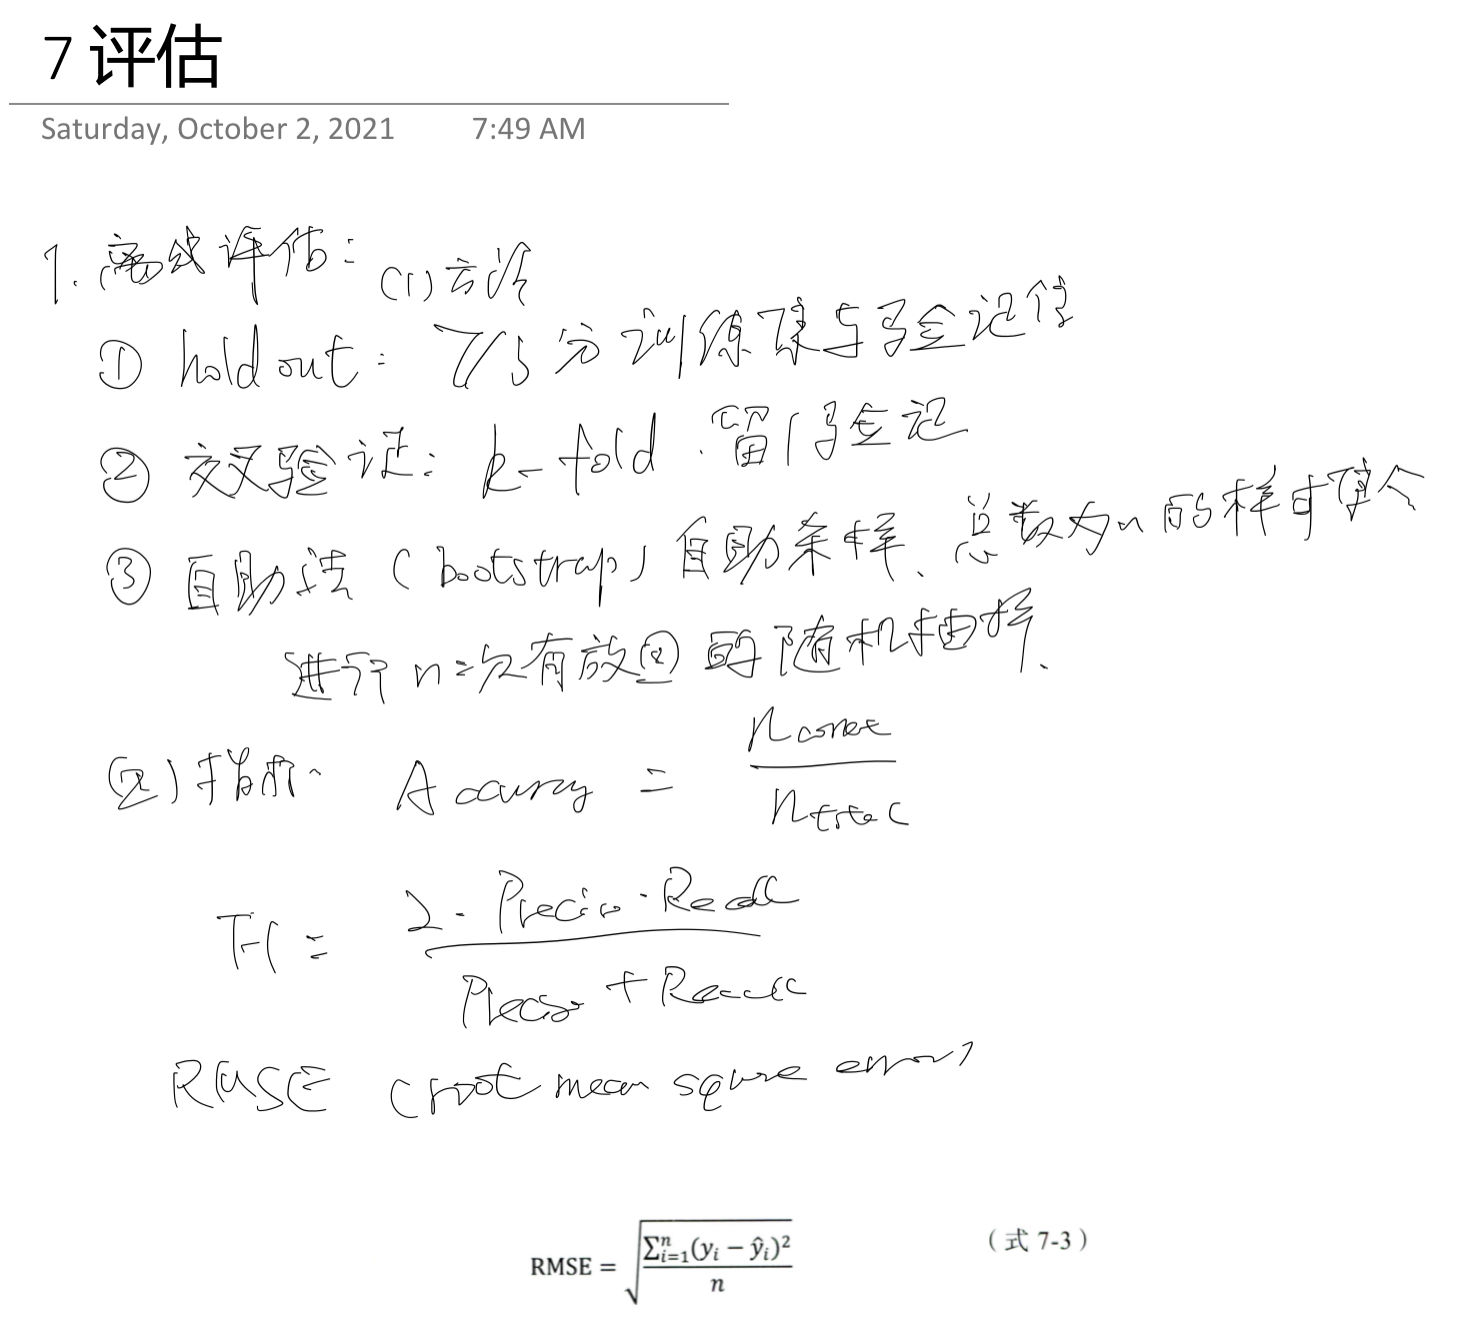 7 评估
Saturday, October 2, 2021 7:49 AM
1. 离线评估: (1) 方法
① holdout: 7/3 分 训练集与验证集
② 交叉验证: k-fold. 留1验证
③ 自助法 (bootstrap) 自助采样、总数为n的样本集合
进行n次有放回的随机抽样、
(2) 指标. Accuracy = n correct / n total
F1 = 2 · Precision · Recall / Precision + Recall
RMSE (root mean square error)
RMSE = √(∑ⁿᵢ₌₁(yᵢ − ŷᵢ)² / n) (式 7-3)